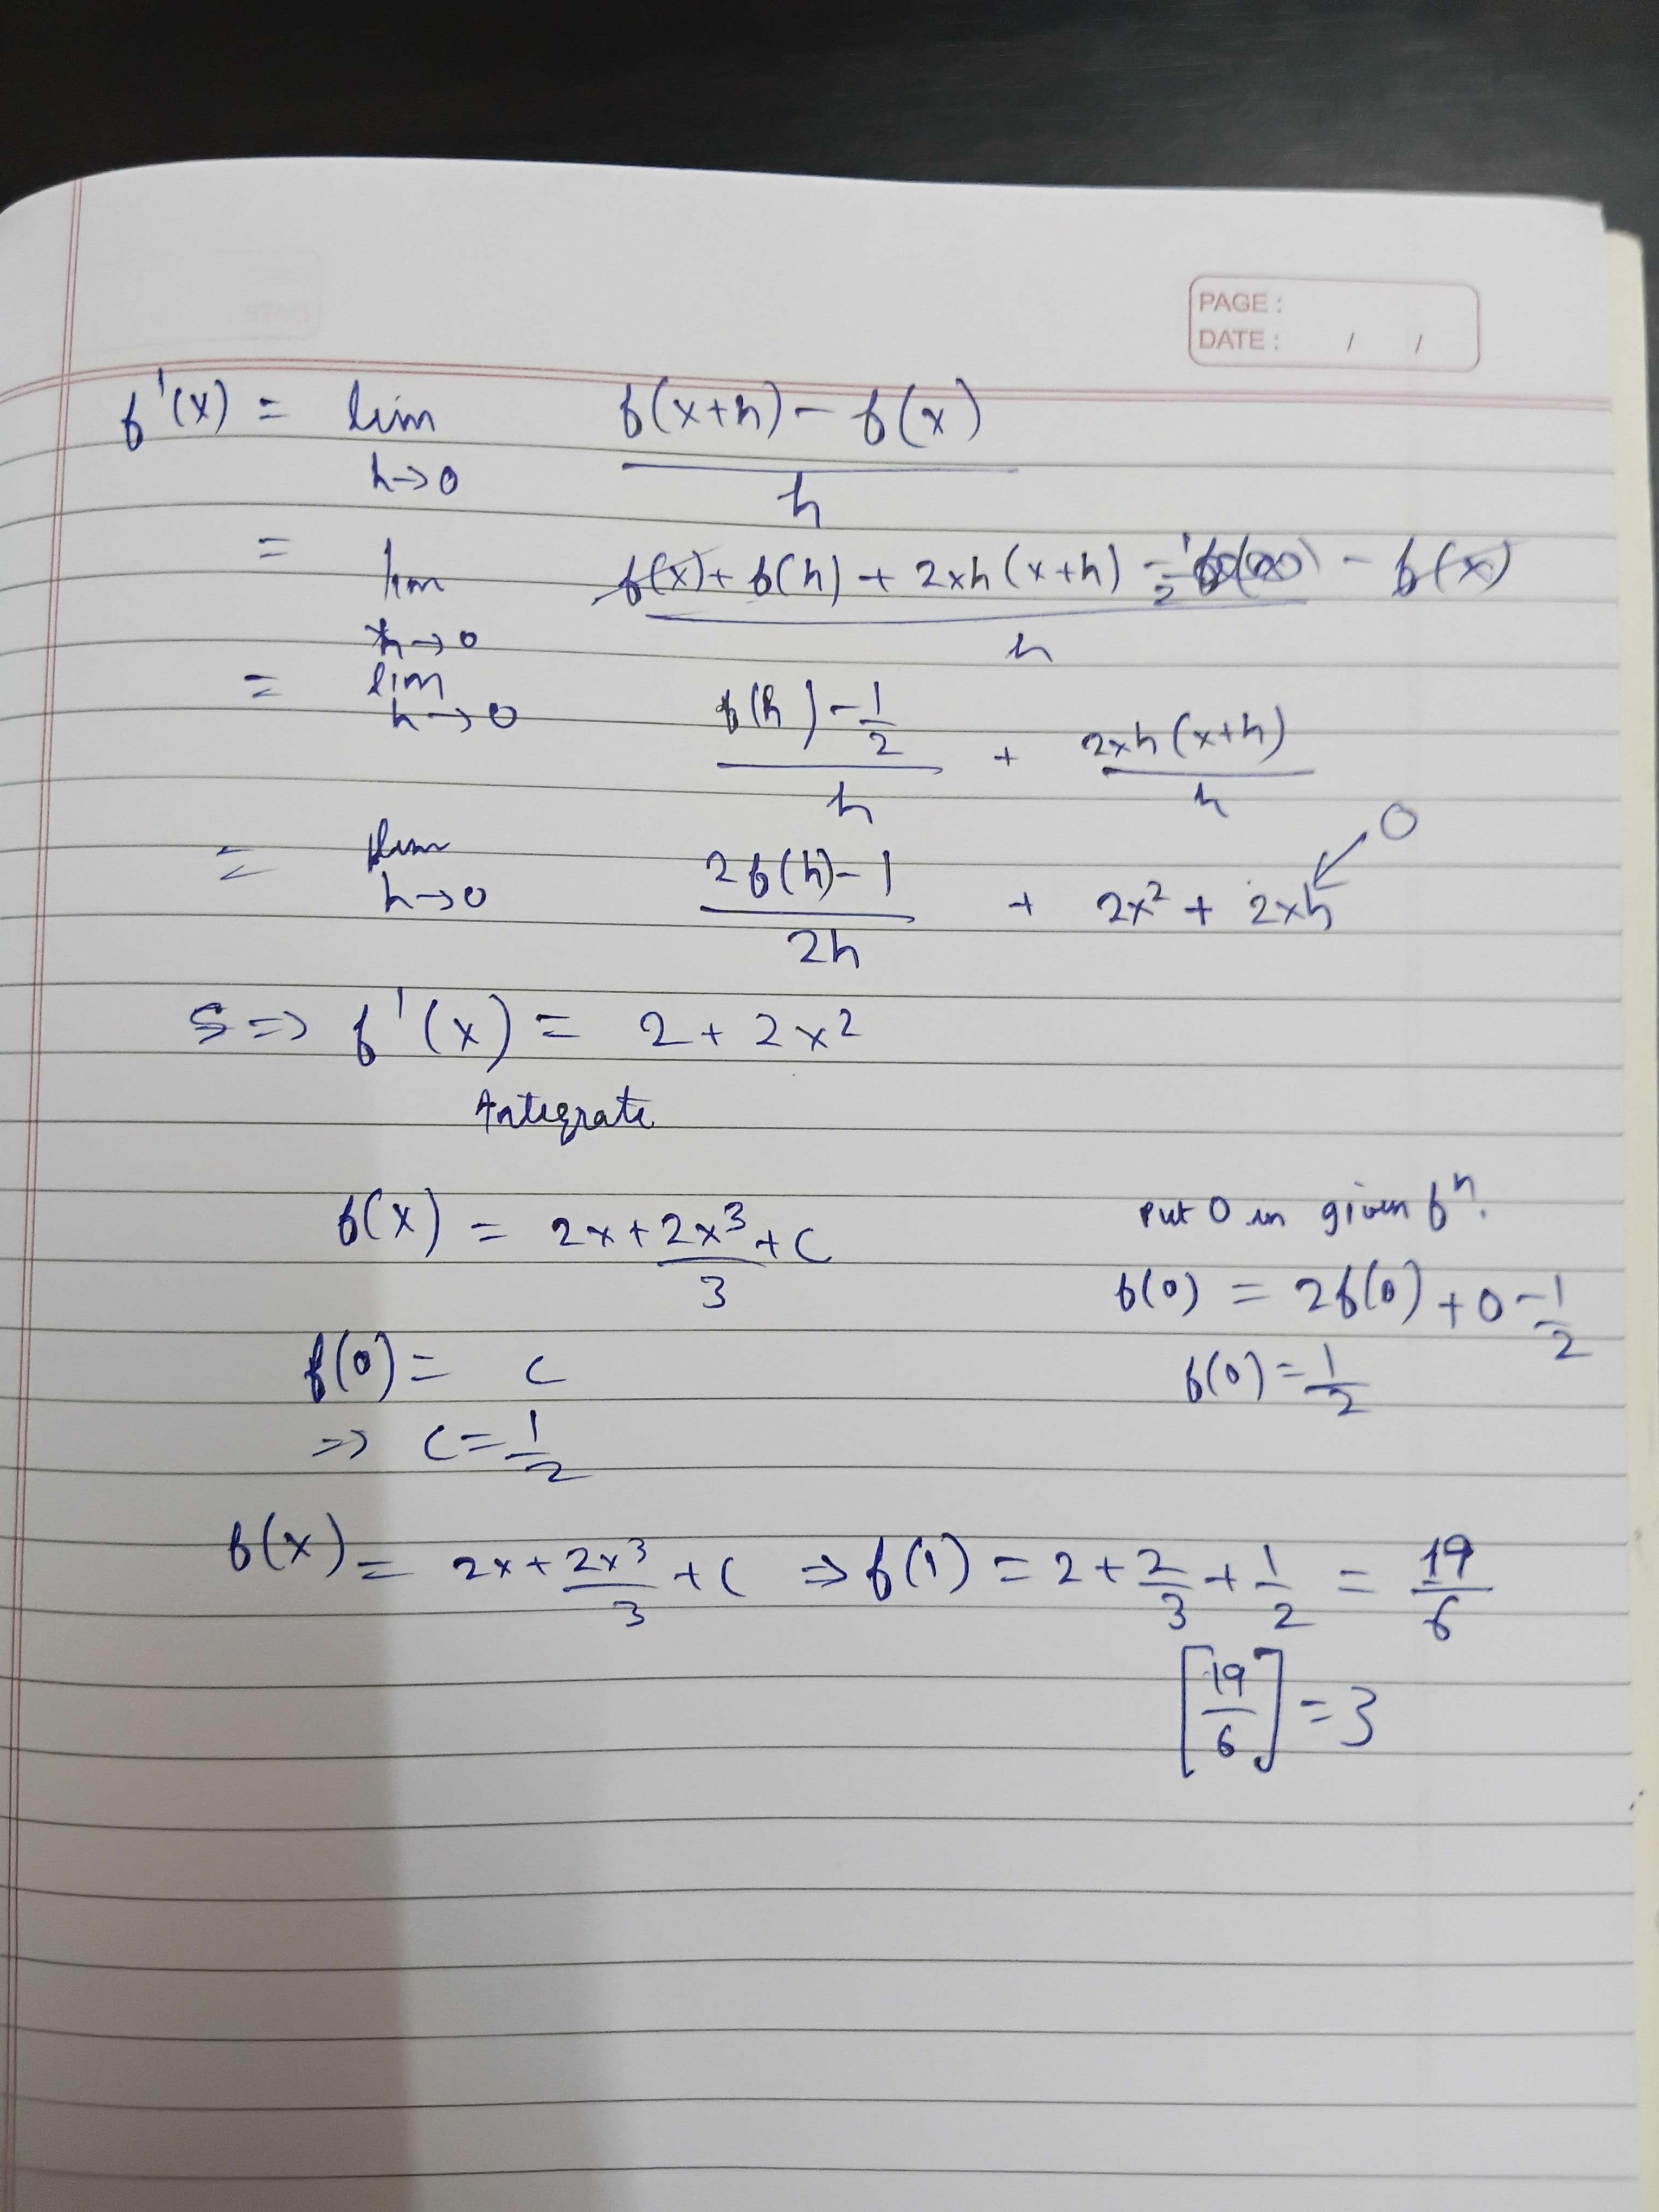 PAGE :
DATE : / /
f'(x) = lim h→0 (f(x+h) - f(x)) / h
= lim h→0 (f(x) + f(h) + 2xh(x+h) - 1/2 - f(x)) / h
= lim h→0 (f(h) - 1/2) / h + 2xh(x+h) / h
= lim h→0 (2f(h) - 1) / 2h + 2x² + 2xh ↙ 0
⇒ f'(x) = 2 + 2x²
Integrate
f(x) = 2x + 2x³/3 + C
put 0 in given fⁿ.
f(0) = 2f(0) + 0 - 1/2
f(0) = C
f(0) = 1/2
⇒ C = 1/2
f(x) = 2x + 2x³/3 + C ⇒ f(1) = 2 + 2/3 + 1/2 = 19/6
[19/6] = 3